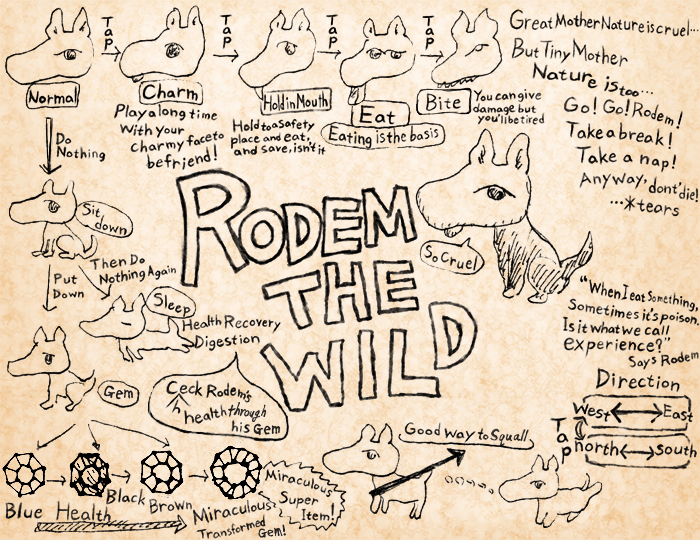 Tap
Tap
Tap
Tap
Normal
Charm
Play along time
With your
charmy face to
befriend!
Hold in Mouth
Hold to a safety
place and eat,
and save, isn't it
Eat
Eating is the basis
Bite
You can give
damage but
you'll be tired
Great Mother Nature is cruel...
But Tiny Mother
Nature is too...
Go! Go! Rodem!
Take a break!
Take a nap!
Anyway, dont' die!
...*tears
Do
Nothing
Sit
down
Put
Down
Then Do
Nothing Again
Sleep
Health Recovery
Digestion
RODEM
THE
WILD
So Cruel
"When I eat Something,
Sometimes it's poison.
Is it what we call
experience?"
Says Rodem
Gem
Ceck Rodem's
h
health through
his Gem
Direction
West East
Tap
north South
Good way to Squall
Blue Health Black Brown
Miraculous
Transformed
Gem!
Miraculous
Super
Item!